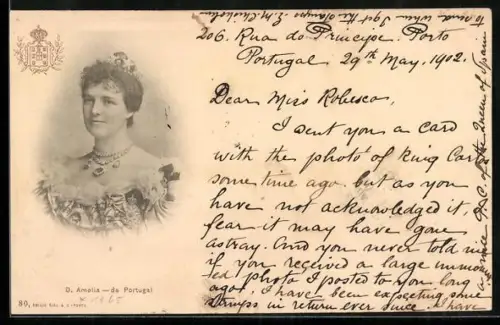 to send when I get the stamps - E. M. Chisholm
206, Rua do Principe. Porto
Portugal 29th May, 1902.
Dear Miss Robesco,
I sent you a card
with the photo of King Carl
some time ago. but as you
have not acknowledged it I
fear it may have gone
astray. And you never told me
if you received a large unmoun
ted photo I posted to you long
ago. I have been expecting some
stamps in return ever since. I have
P.C. of the Queen of Spain
D. Amelia — de Portugal
* 1865
80,